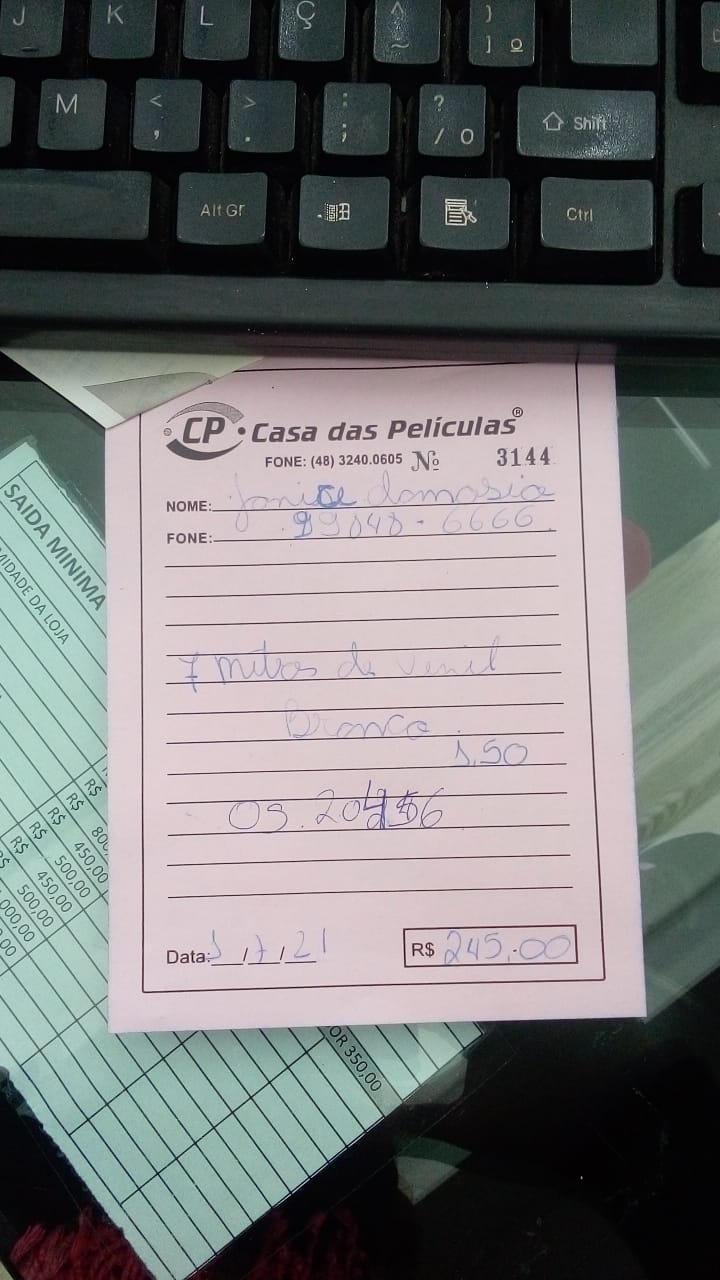 J K L Ç ^ ~ } ] º
M < , > . : ; ? / O Shift
Alt Gr Ctrl
CP Casa das Películas ®
FONE: (48) 3240.0605 Nº 3144
NOME: Janice damasio
FONE: 99848-6666
7 mitros de venil
Branco
1,50
Data: 1/7/21 R$ 245,00
SAIDA MINIMA
MIDADE DA LOJA
R$ 800
R$ 450,00
R$ 500,00
R$ 450,00
500,00
.000,00
OR 350,00